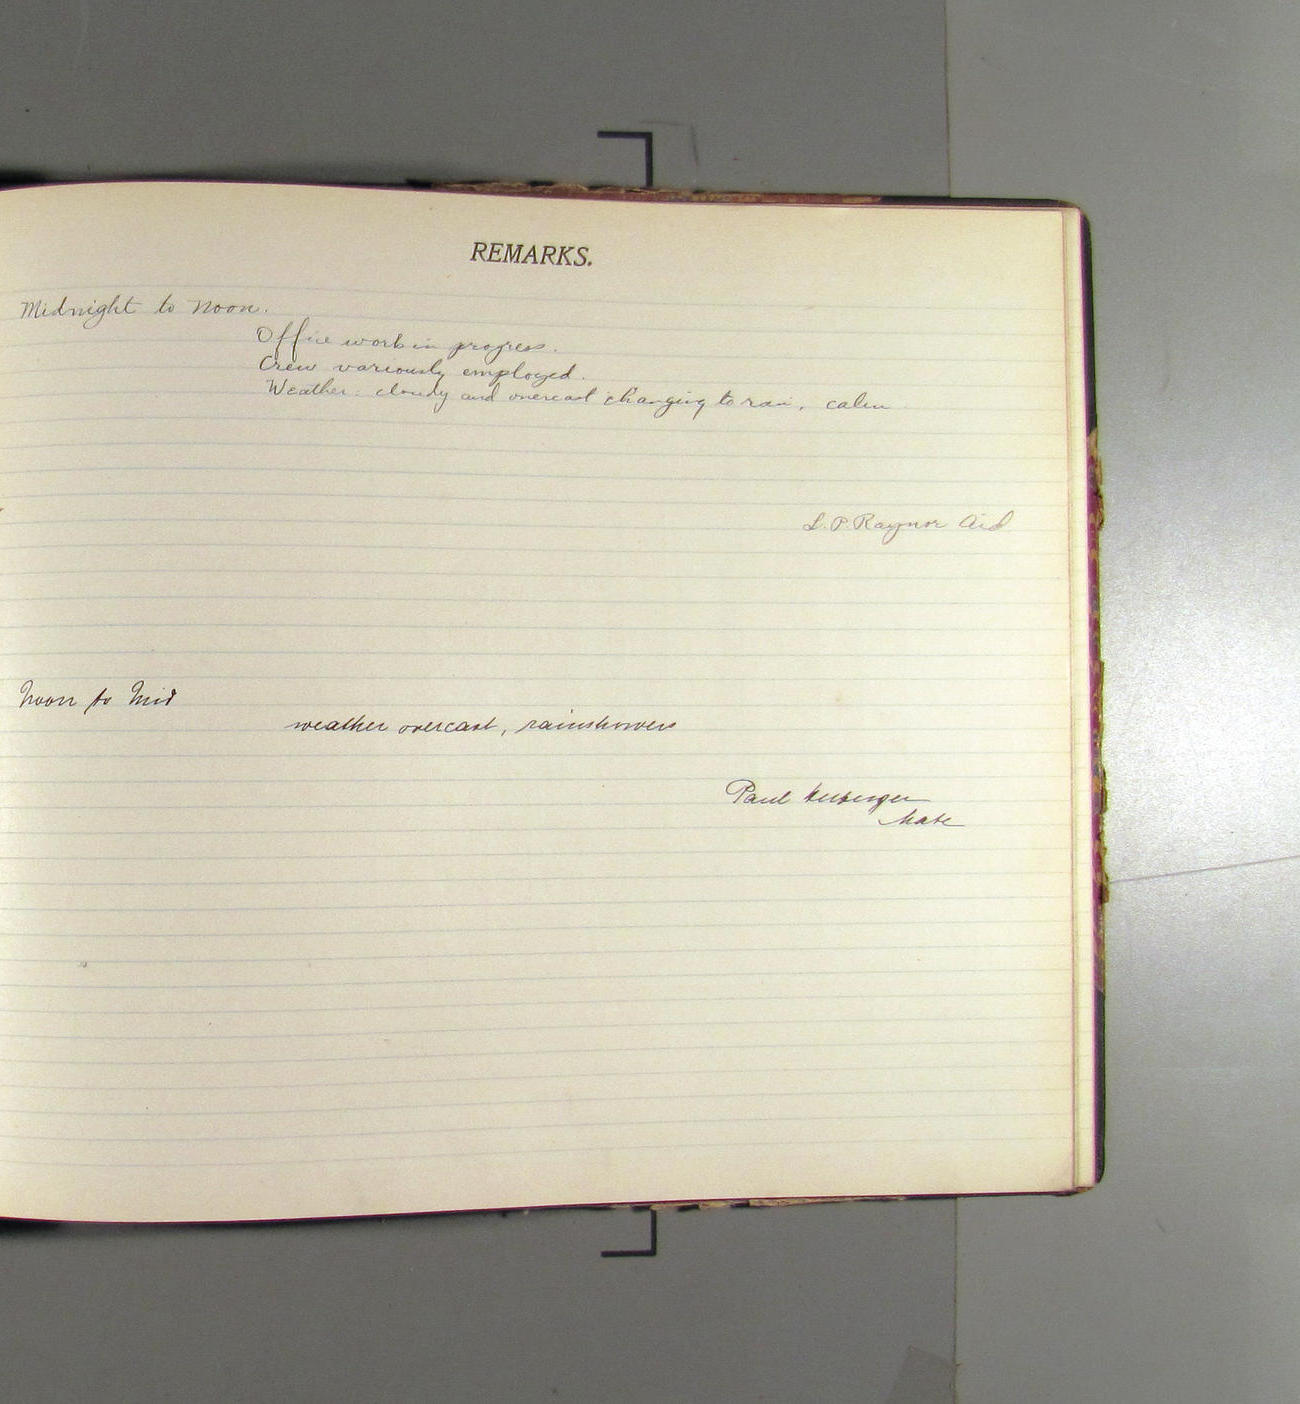 REMARKS.
Midnight to Noon.
Office work in progress.
Crew variously employed.
Weather: cloudy and overcast changing to rain, calm
L. P. Raynor Aid
Noon to Mid
weather overcast, rainshowers
Paul
Mate